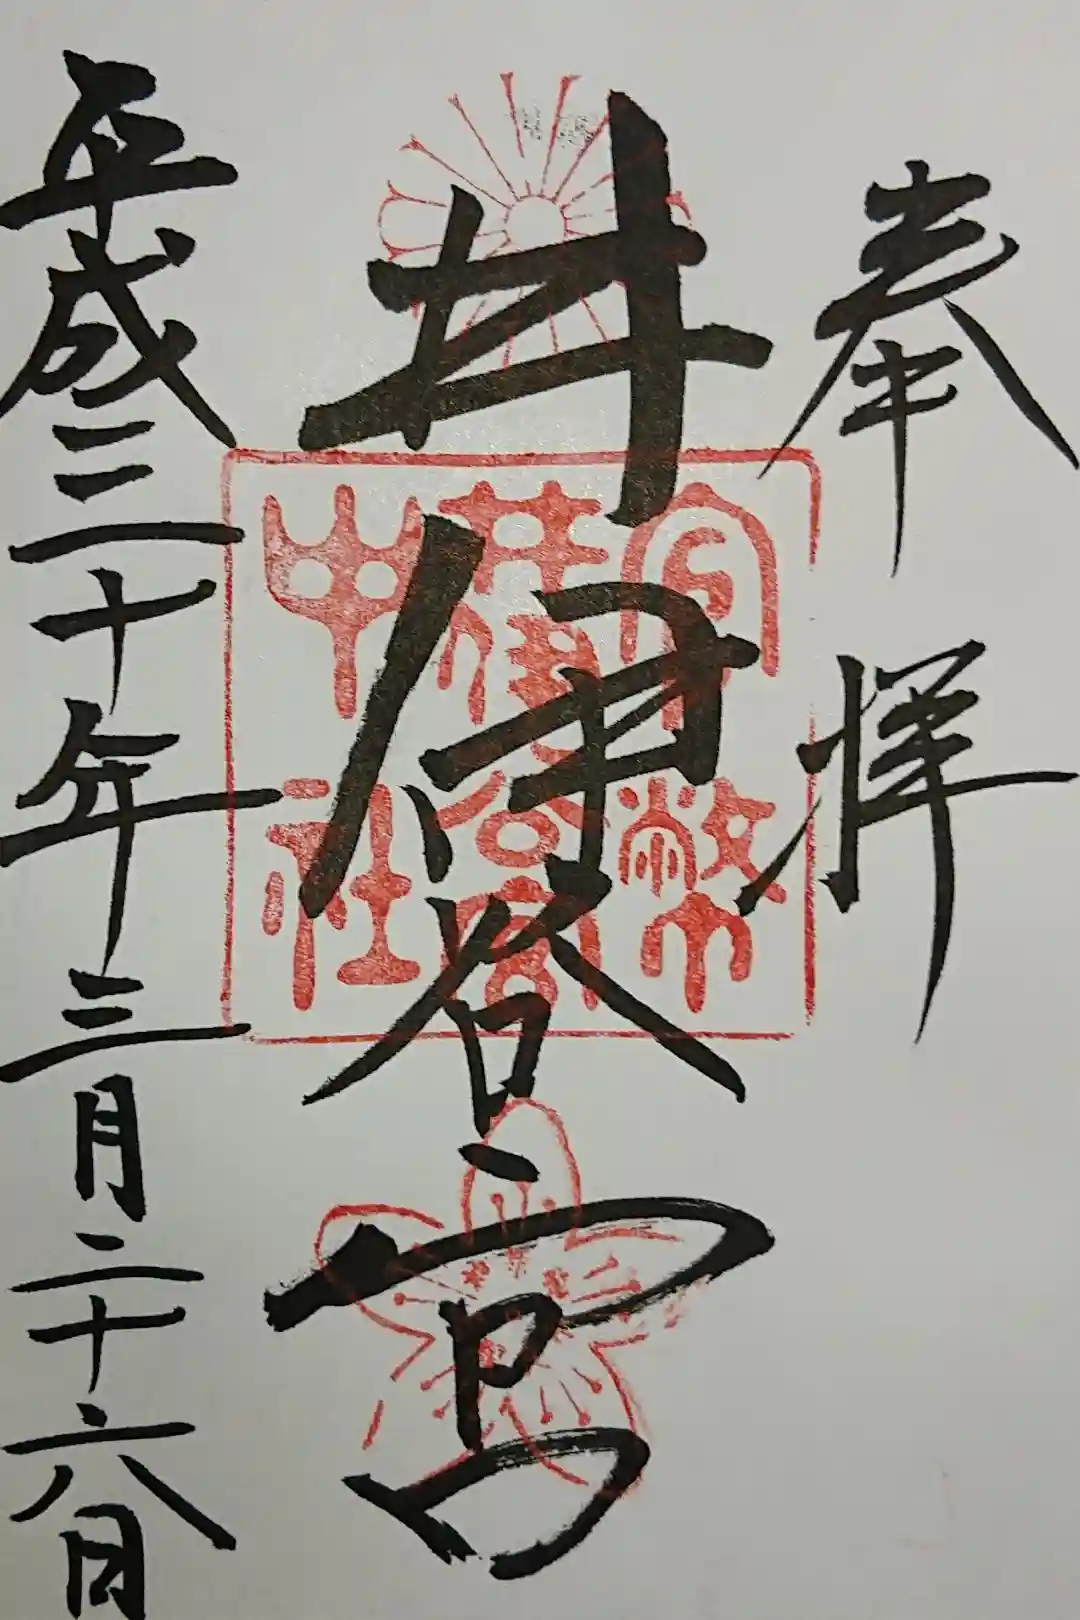 奉拝
井伊谷宮
官幣
井伊谷宮
中社
平成三十年三月二十六日